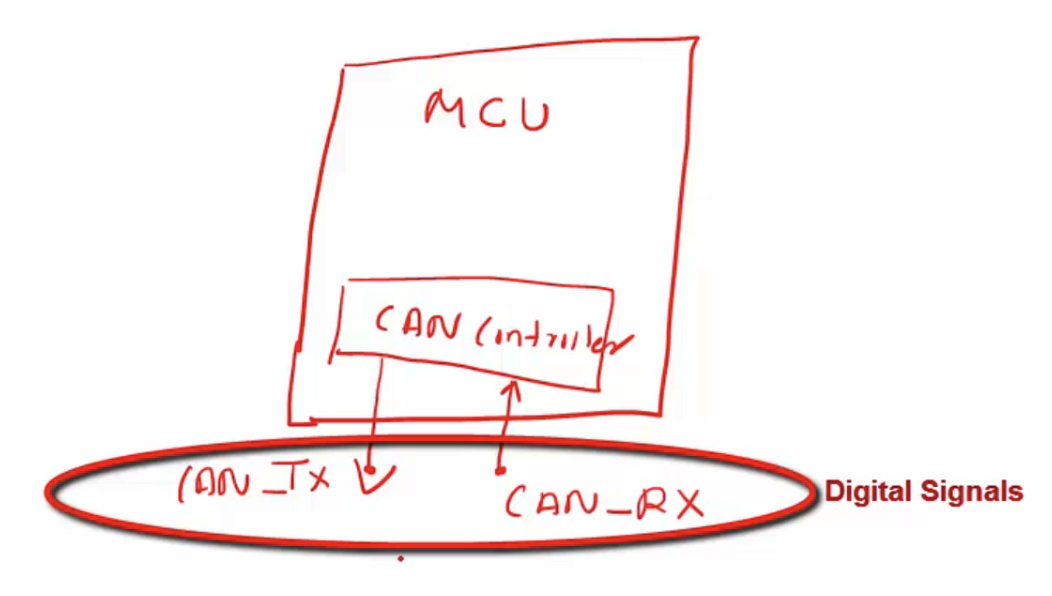 MCU
CAN Controller
CAN_Tx
CAN_RX
Digital Signals